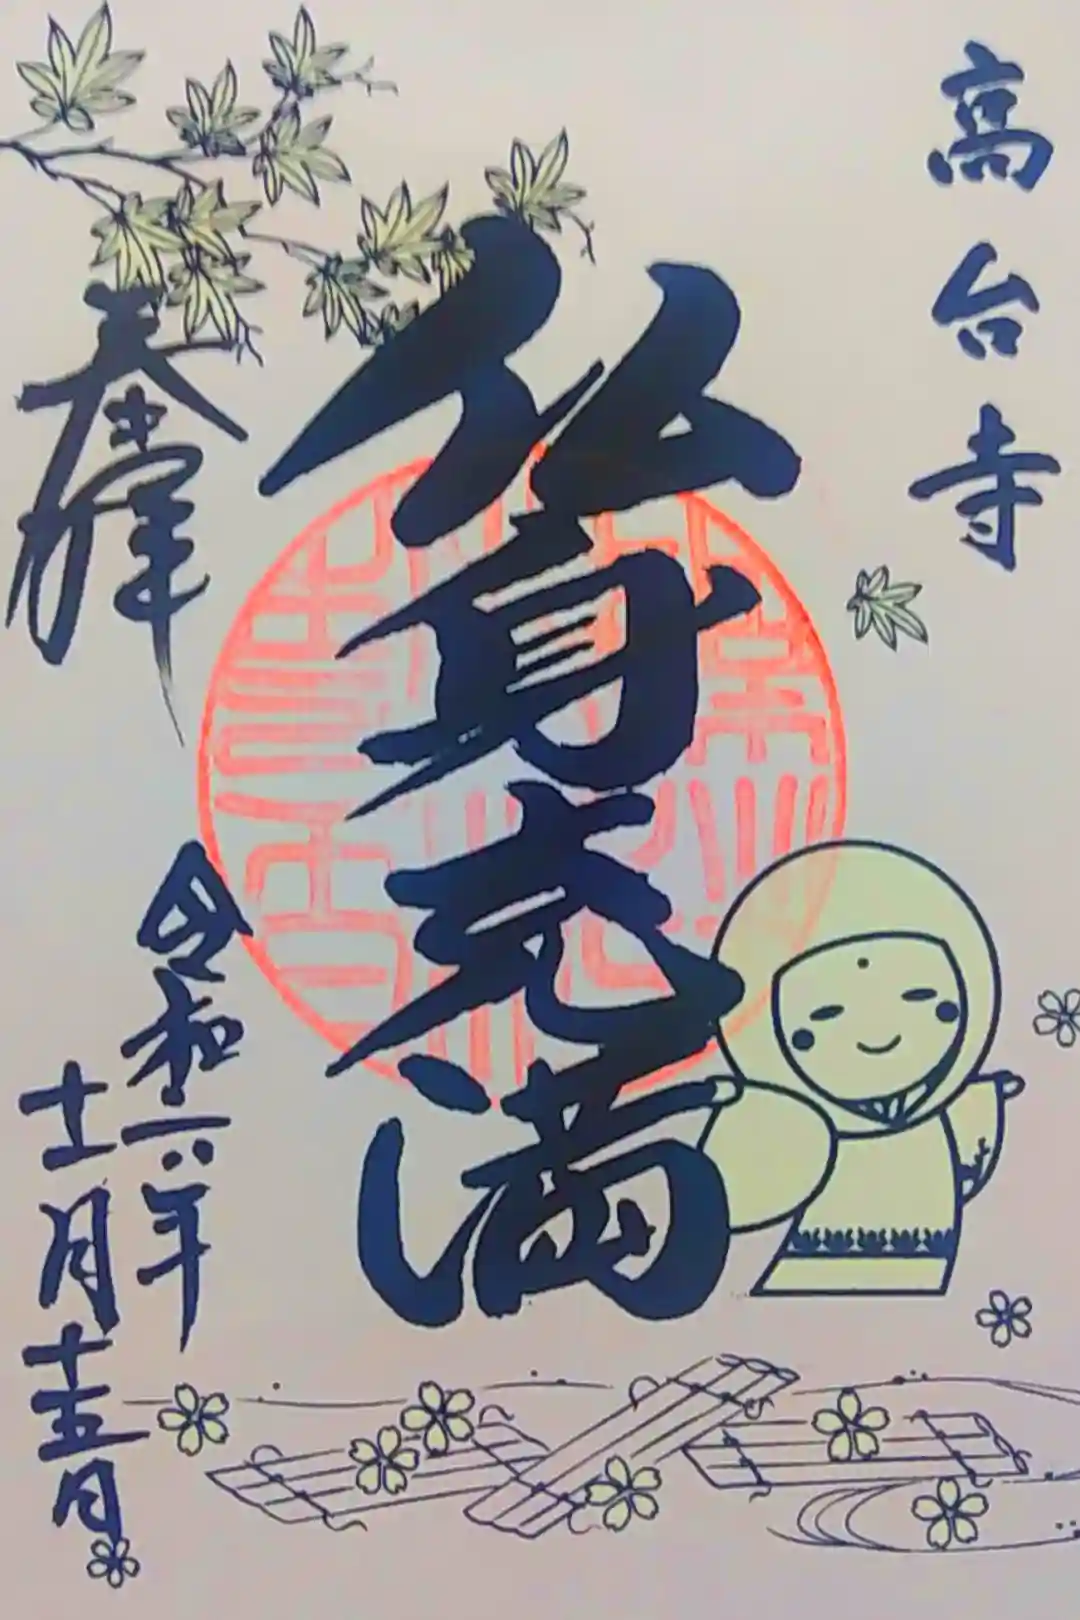 高台寺
仏身充満
奉拝
令和六年
十一月十五日